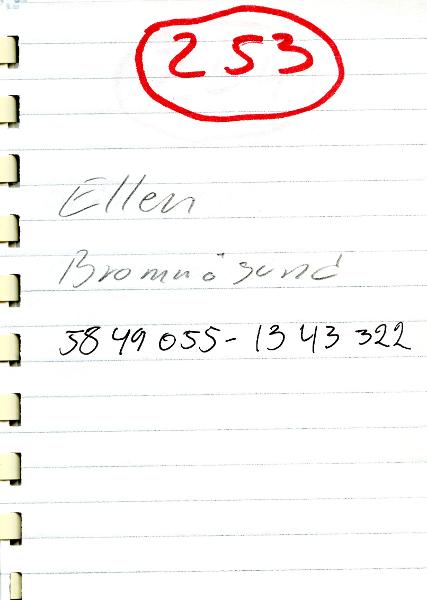 253
Ellen
Bromnösund
5849055-1343322